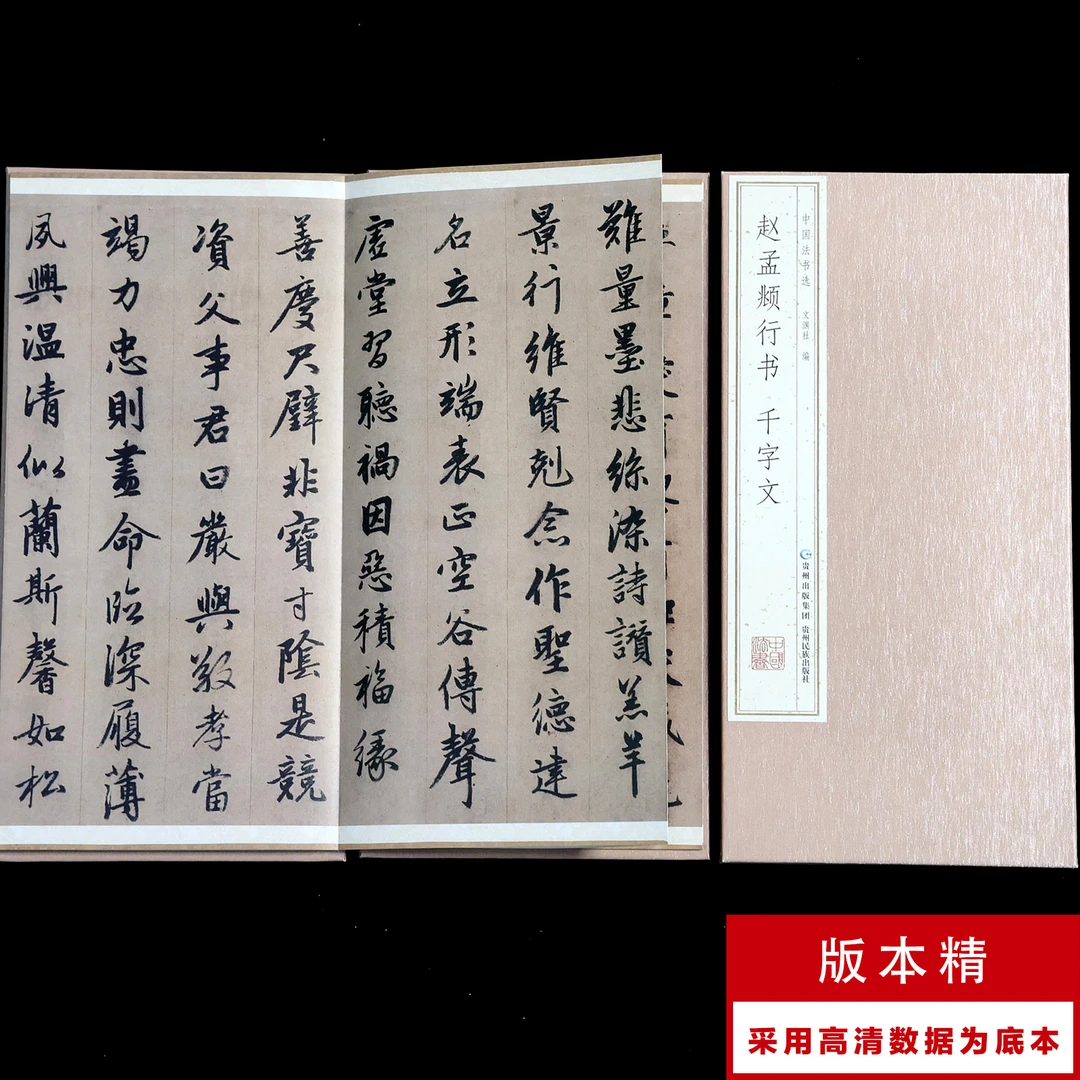 難量墨悲絲染詩讚羔羊
景行維賢剋念作聖德建
名立形端表正空谷傳聲
虛堂習聽禍因惡積福緣
善慶尺璧非寶寸陰是競
資父事君曰嚴與敬孝當
竭力忠則盡命臨深履薄
夙興溫凊似蘭斯馨如松
中国法书选 文溟社 编
赵孟頫行书 千字文
贵州出版集团 贵州民族出版社
中國法書
版本精
采用高清数据为底本